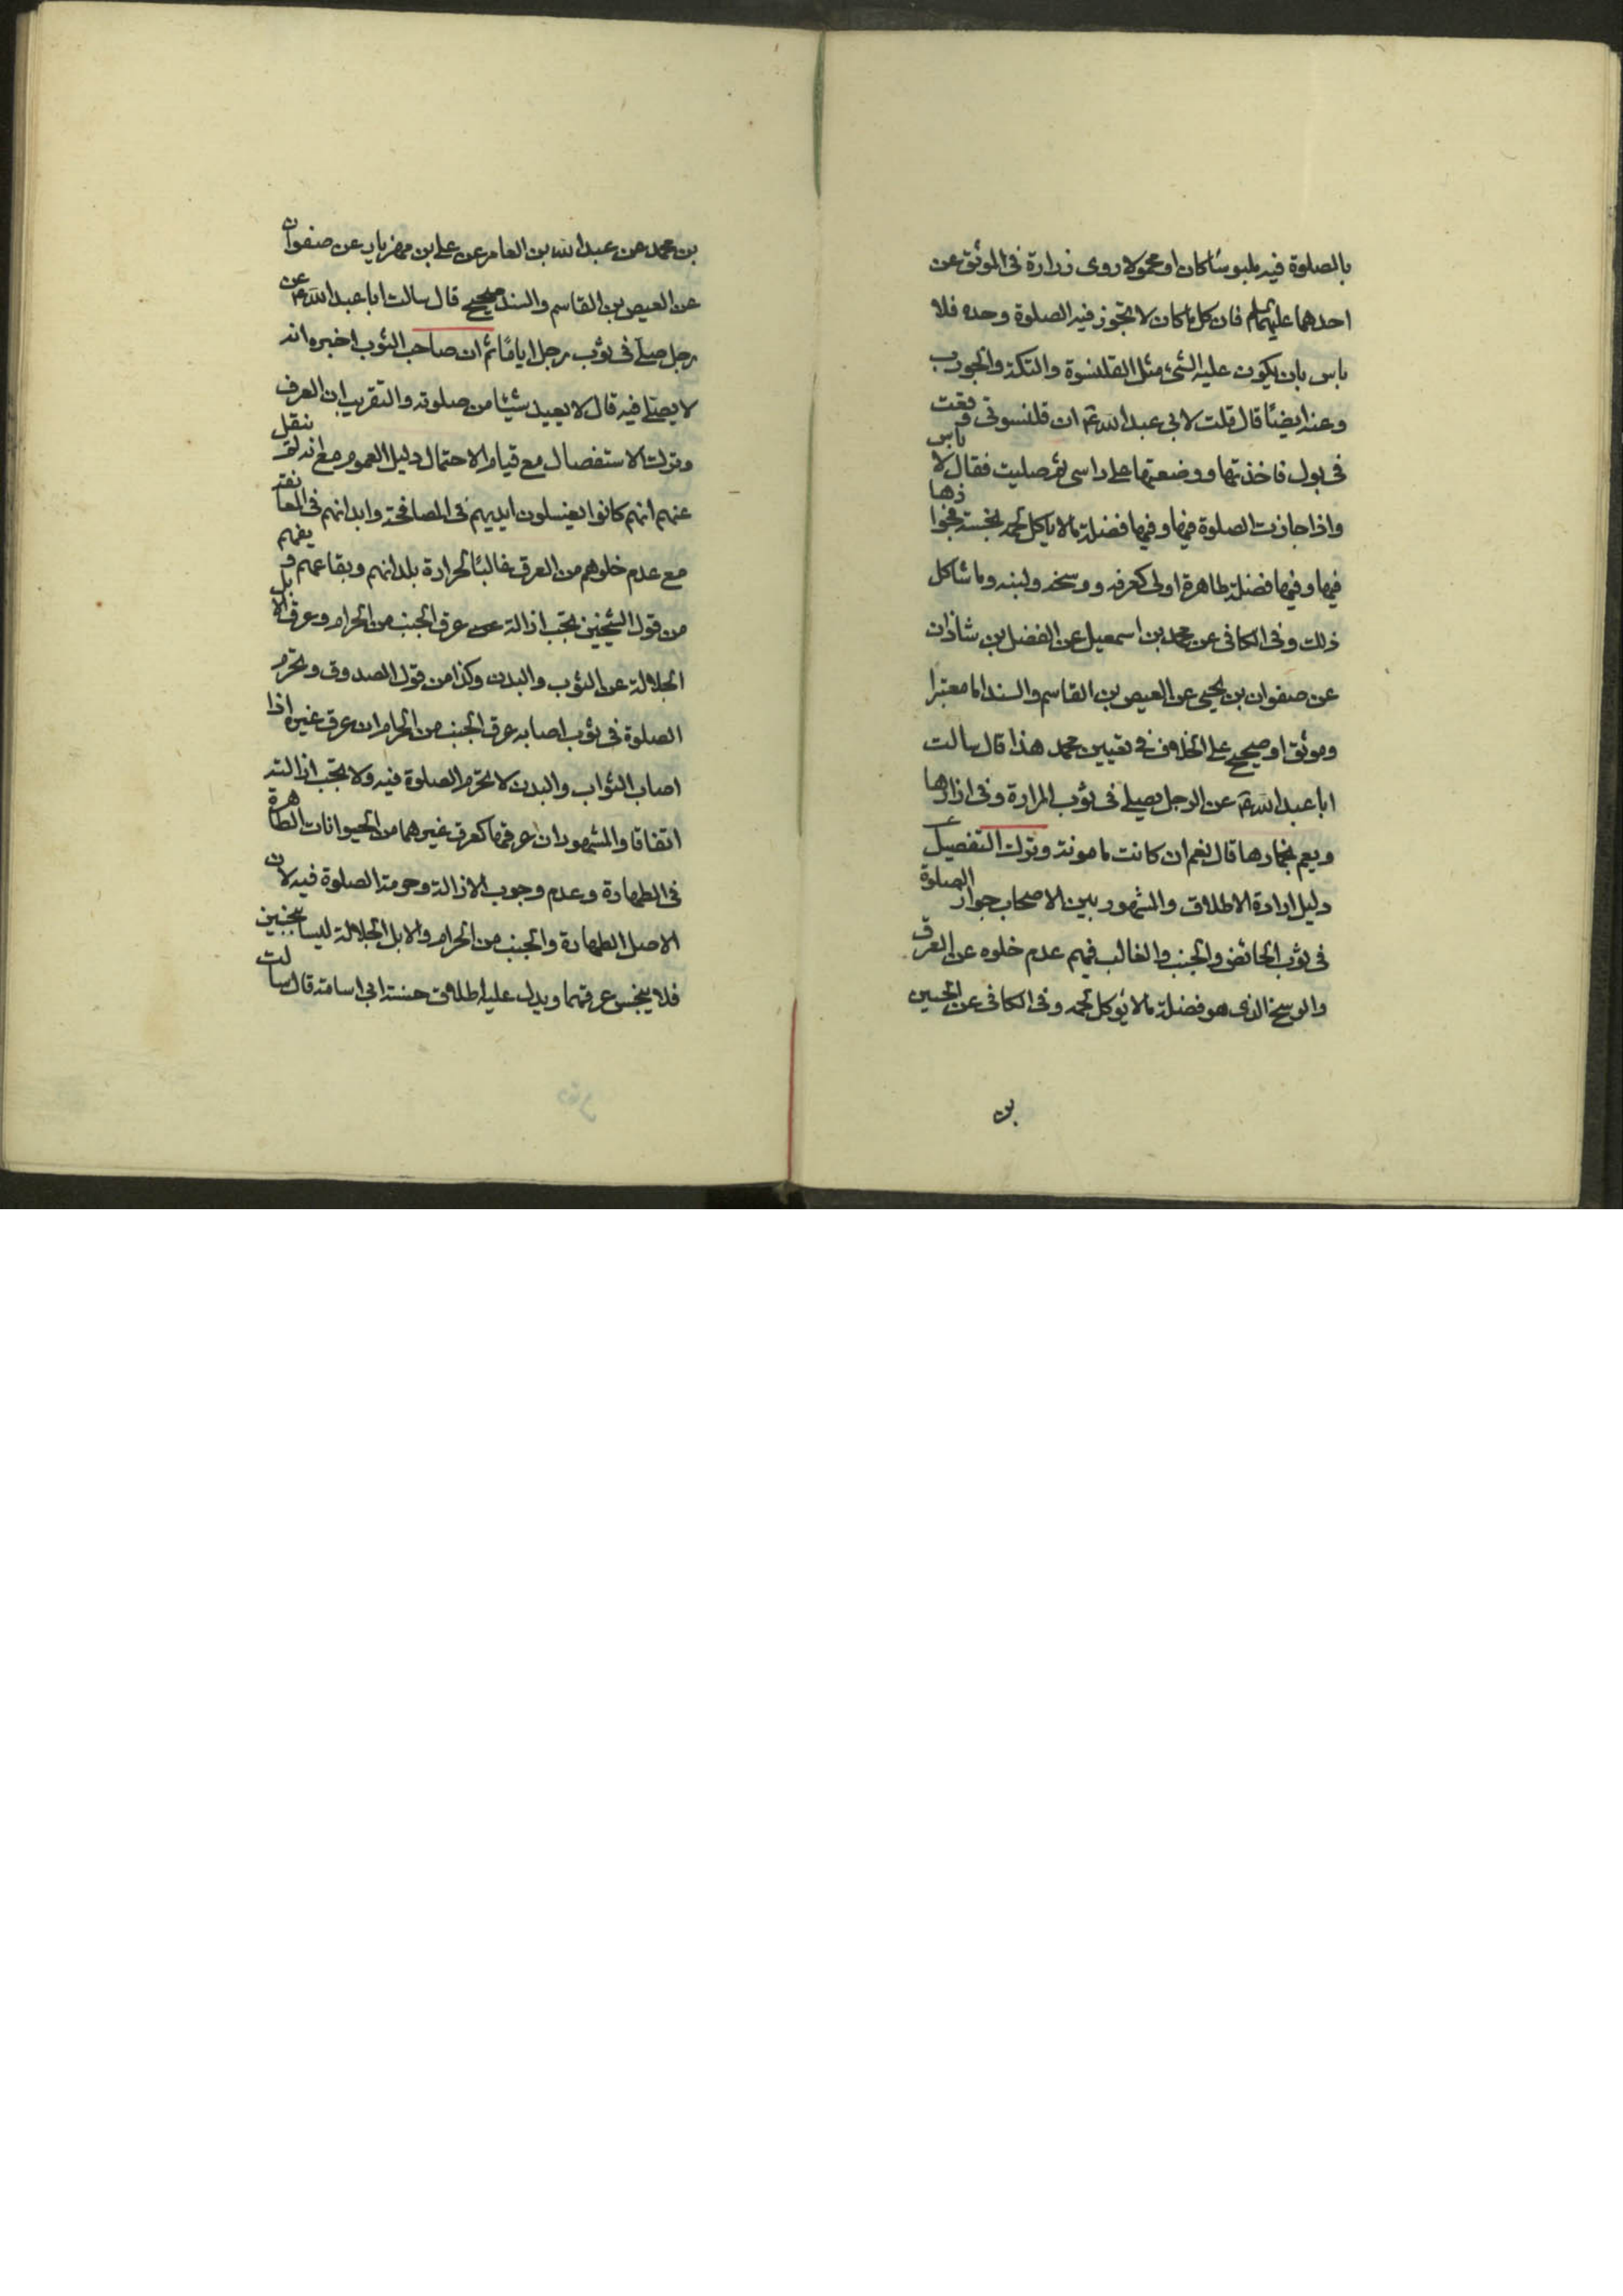 بالصلوة فيه ملبوسًا كان او محمولا روى زرارة فى الموثق عن
احدهما عليهما السلم قال كل ما كان لا تجوز فيه الصلوة وحده فلا
باس بان يكون عليه الشئ مثل القلنسوة والتكة والجورب
وعنه ايضًا قال قلت لابى عبد الله ع ان قلنسوتى وقعت
فى بول فاخذتها ووضعتها على راسى ثم صليت فقال لا باس
واذا جازت الصلوة فيها وفيها فضلة ما لا ياكل لحمه نجسة فجوازها
فيها وفيها فضلة طاهرة اولى كعرقه ووسخه ولبنه وما شاكل
ذلك وفى الكافى عن محمد بن اسمعيل عن الفضل بن شاذان
عن صفوان بن يحيى عن العيص بن القاسم والسند اما معتبرا
وموثق او صحيح على الخلاف فى تعيين محمد هذا قال سالت
ابا عبد الله ع عن الرجل يصلى فى ثوب المراة وفى ازارها
ويعم بخمارها قال نعم ان كانت مامونة وترك التفصيل
دليل ارادة الاطلاق والمشهور بين الاصحاب جواز الصلوة
فى ثوب الحائض والجنب والغالب فيهم عدم خلوه عن العرق
والوسخ الذى هو فضلة ما لا يؤكل لحمه وفى الكافى عن الحسين
بن
بن محمد عن عبد الله بن العامر عن على بن مهزيار عن صفوان
عن العيص بن القاسم والسند صحيح قال سالت ابا عبد الله ع عن
رجل صلى فى ثوب رجل ايامًا ثم ان صاحب الثوب اخبره انه
لا يصلى فيه قال لا يعيد شيئا من صلوته والتقريب ان العرف
وترك الاستفصال مع قيام الاحتمال دليل العموم مع انه لم ينقل
عنهم انهم كانوا يغسلون ايديهم فى المصافحة وابدانهم فى المعانقة
مع عدم خلوهم من العرق غالبًا لحرارة بلدانهم وبقاعهم و
من قول الشيخين تجب ازالة عن عرق الجنب من الحرام وعرق الابل
الجلالة عن الثوب والبدن وكذا من قول الصدوق وتحرم
الصلوة فى ثوب اصابه عرق الجنب من الحرام ان عرق غيره اذا
اصاب الثواب والبدن لا تحرم الصلوة فيه ولا تجب ازالته
اتفاقا والمشهور ان عرقهما كعرق غيرهما من الحيوانات الطاهرة
فى الطهارة وعدم وجوب الازالة وحرمة الصلوة فيه لان
الاصل الطهارة والجنب من الحرام والابل الجلالة ليسا بنجسين
فلا ينجس عرقهما ويدل عليه اطلاق حسنة ابى اسامة قال سالت